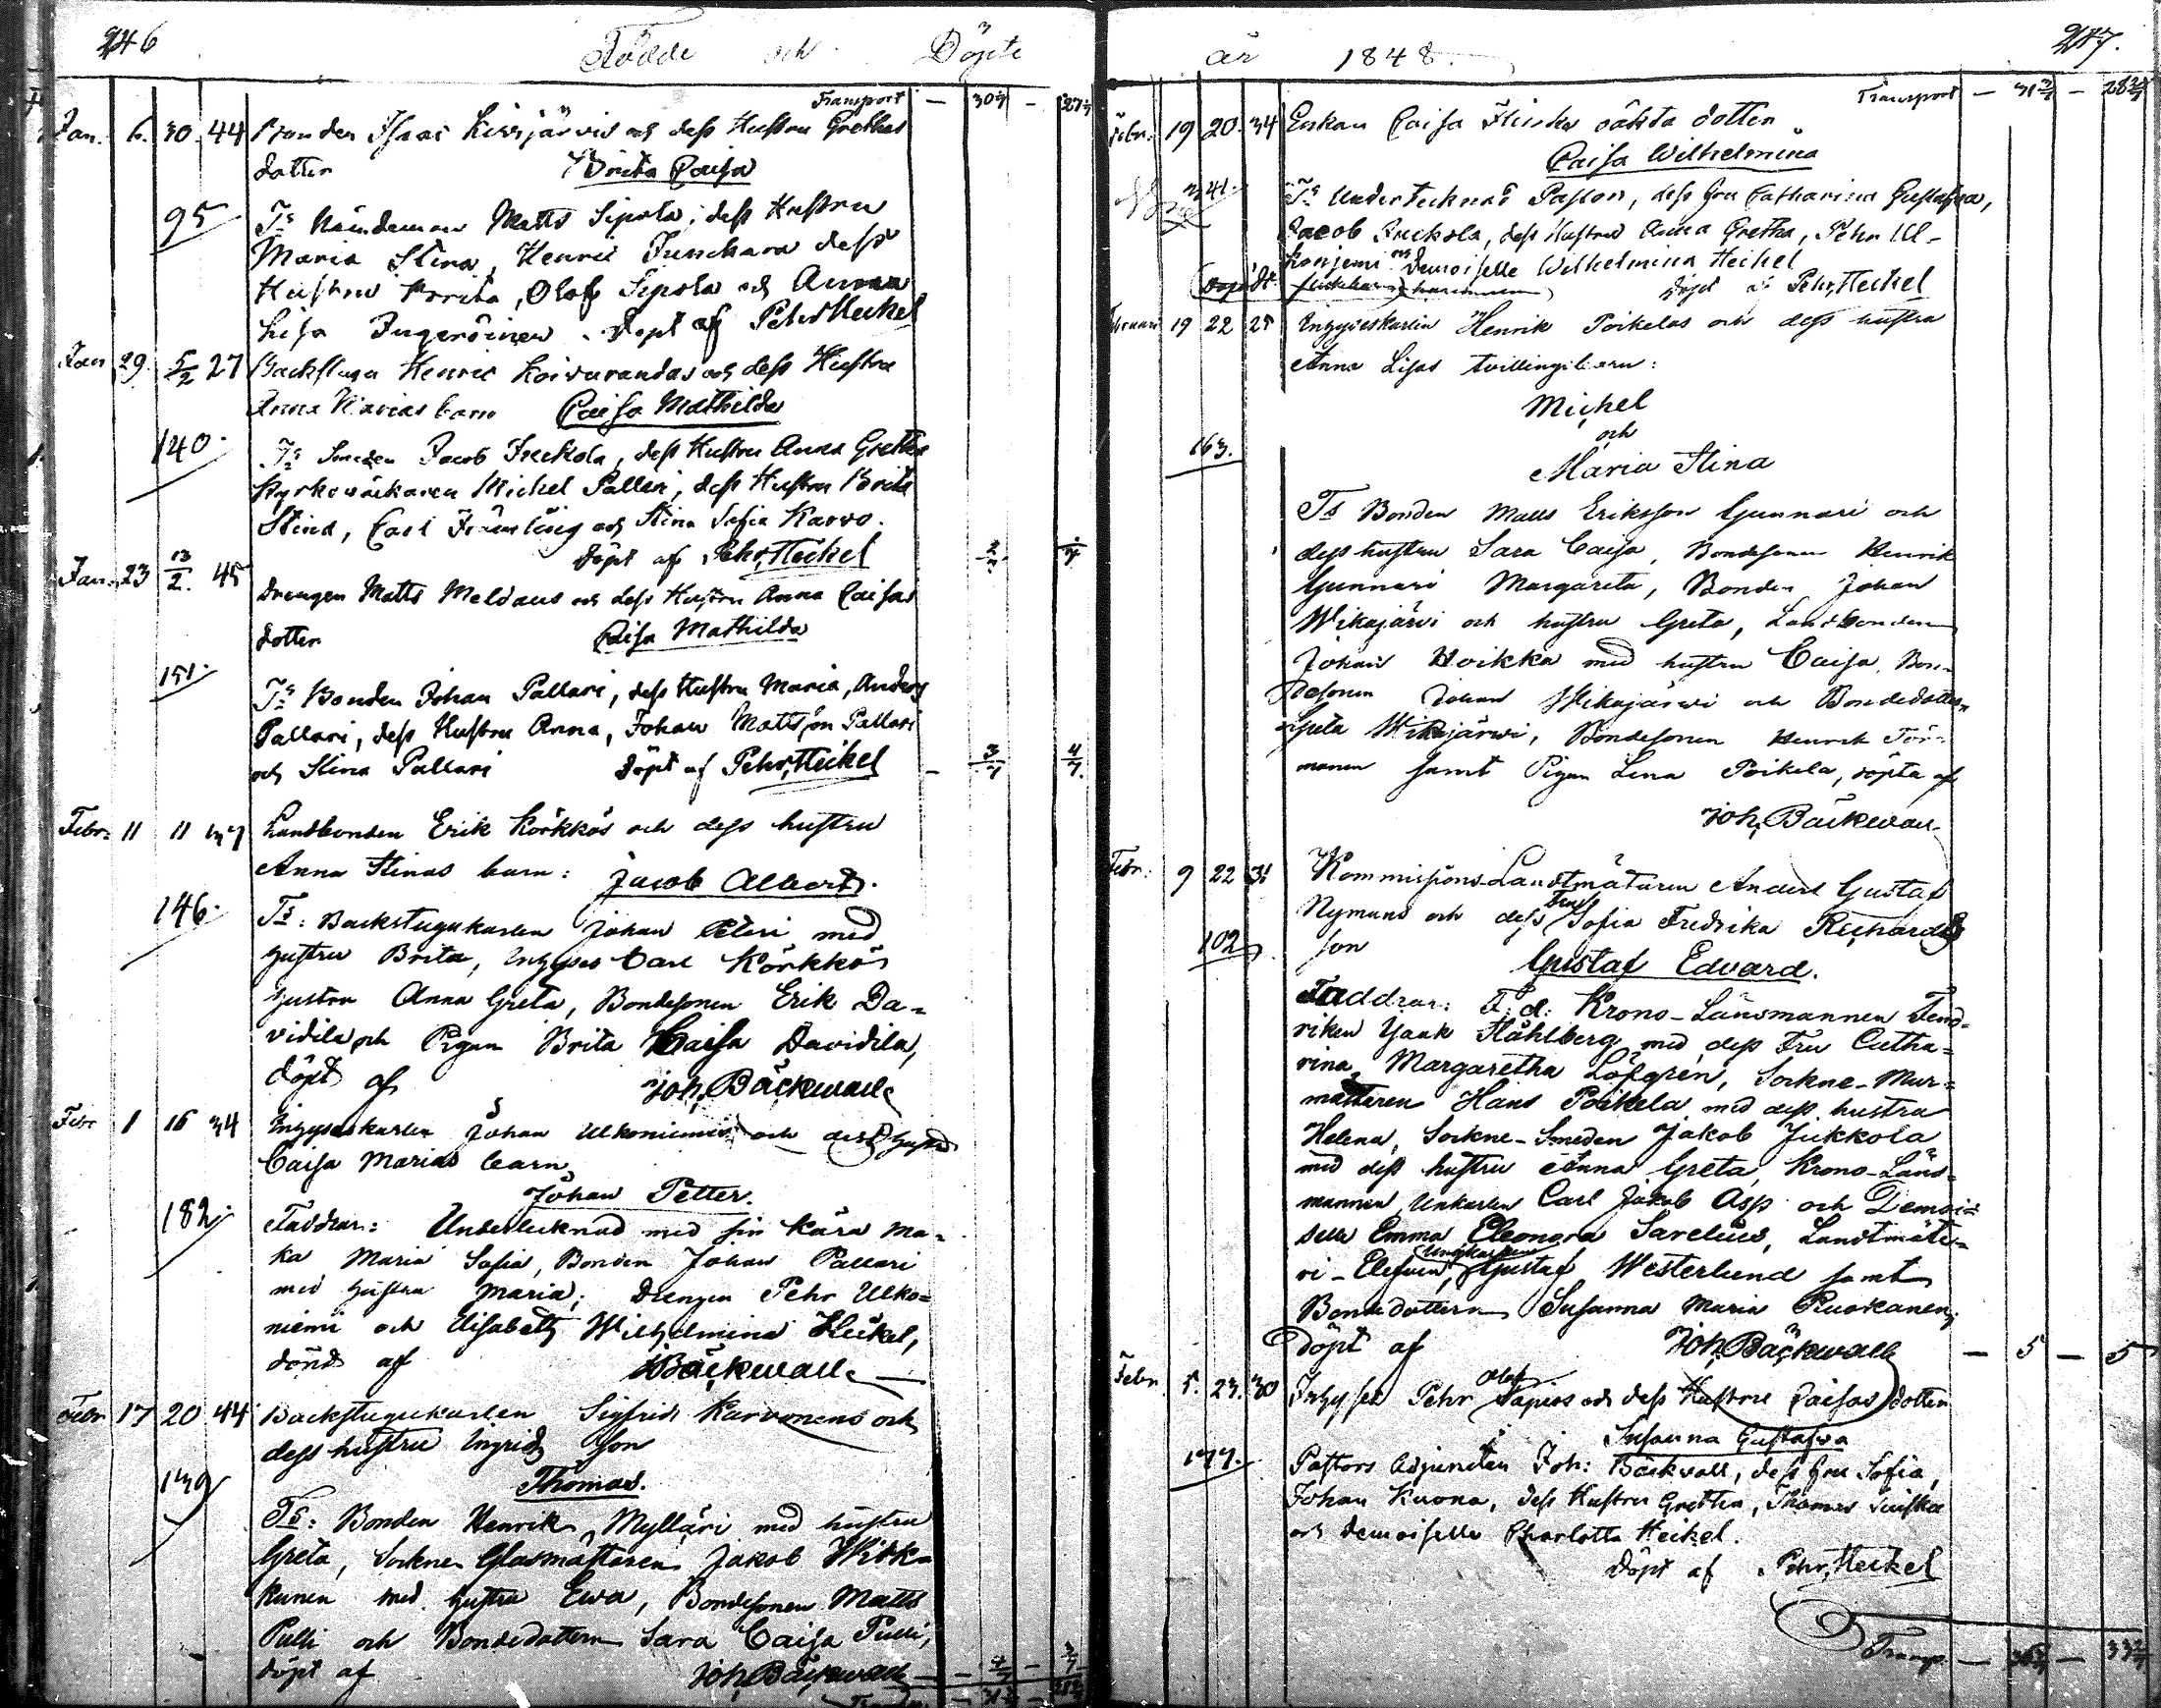 246
Födde och Döpte
Transport — 30 — 27
Jan. 6. 30. 44 Bonden Isaac Kissjärvis och dess Hustru Grethas
dotter Brita Caisa
95 Ts Nämdeman Matts Sipola, dess Hustru
Maria Stina, Henric dess
Hustru Brita, Olof Sipola och Anna
Lisa Ingeröinen. Döpt af Pehr Heikel
Jan 29. 5/2 27 Henric Koivurandas och dess Hustru
Anna Marias barn Caisa Mathilda
140. Ts Smeden Jacob Juckola, dess Hustru Anna Gretha
Kyrkowäktaren Michel Palleri, dess Hustru Brita
Stina, Carl och Stina Sofia Karvo.
Döpt af Pehr Heikel
Jan. 23 13/2. 45 Drengen Matts Meldaus och dess Hustru Anna Caisas
dotter Caisa Mathilda
151. Ts Bonden Johan Pallari, dess Hustru Maria, Anders
Pallari, dess Hustru Anna, Johan Mattsson Pallari
och Stina Pallari Döpt af Pehr Heikel — 3/7 4/7.
Febr: 11 11 Landbonden Erik Körkkös och dess hustru
Anna Stinas barn: Jacob Albert.
146. Ts: Backstugukarlen Johan med
hustru Brita, Inhyses Carl Körkkös
hustru Anna Greta, Bondesonen Erik Da=
vidila och Pigan Brita Caisa Davidila,
döpt af Joh. Bäckwall
Febr 1 16 34 Inhyseskarlen Johan Ulkoniemis och dess hustru
Caisa Marias barn
Johan Petter.
182. Faddrar: Undertecknad med sin kära Ma=
ka Maria Sofia, Bonden Johan Pallari
med hustru Maria, Drengen Pehr Ulko=
niemi och Elisabeth Wilhelmina Heikel,
döpt af JBäckwall
Febr 17 20 44 Backstugukarlen Sigfrid Karvonens och
dess hustru Ingrids Son
139 Thomas.
Ts: Bonden Henrik Mylläri med hustru
Greta, Sockne Glasmästaren Jakob Wirk=
kunen med hustru Ewa, Bondesonen Matts
Pulli och Bondedottern Sara Caisa Pulli,
döpt af Joh. Bäckwall
år 1848.
247.
Transport — 31 — 28
Febr. 19 20. 34 Enkan Caisa oäkta dotter
Caisa Wilhelmina
241. Ts Undertecknad Pastor, dess fru Catharina Gustafva,
Jacob Juckola, dess Hustru Anna Gretha, Pehr Ul-
koniemi och Demoiselle Wilhelmina Heikel
Döpt af Pehr Heikel
Februari 19 22 25 Inhyseskarlen Henrik Poikelas och dess hustru
Anna Lisas tvillingibarn:
Michel
och
163. Maria Stina
Ts Bonden Matts Eriksson Gunnari och
dess hustru Sara Caisa, Bondesonen Henrik
Gunnari Margareta, Bonden Johan
Wikajärvi och hustru Greta, Landbonden
Johan Hoikka med hustru Caisa, Bon=
desonen Johan Wikajärwi och Bondedottern
Greta Wikajärwi, Bondesonen Henrik Tör=
manen samt Pigan Lena Poikela, döpta af
Joh. Bäckwall
Febr: 9 22 31 Kommissions-Landtmätaren Anders Gustaf
Nymans och dess Fru Sofia Fredrika Richards
102 son
Gustaf Edvard.
Faddrar: F. d. Krono-Länsmannen Fend=
riken Isaak Ståhlberg med dess Fru Catha=
rina Margaretha Löfgren, Sockne-Mur=
mästaren Hans Poikela med dess hustru
Helena, Sockne-Smeden Jakob Jukkola
med dess hustru Anna Greta, Krono-Läns=
mannen Unkarlen Carl Jakob Asp och Demoi=
selle Emma Eleonora Sarelius, Landtmäte=
ri-Eleven, Ungkarlen Gustaf Westerlund samt
Bondedottern Susanna Maria Ruokanen,
Döpt af Joh. Bäckwall — 5 — 5
Febr. 5. 23. 30 Inhyses Pehr Olof Tapios och dess Hustru Caisas dotter
Susanna Gustafva
177. Pastors Adjuncten Joh: Bäckvall, dess fru Sofia,
Johan Kuona, dess Hustru Gretha, Thomas
och Demoiselle Charlotta Heikel.
Döpt af Pehr Heikel
Transp. — —